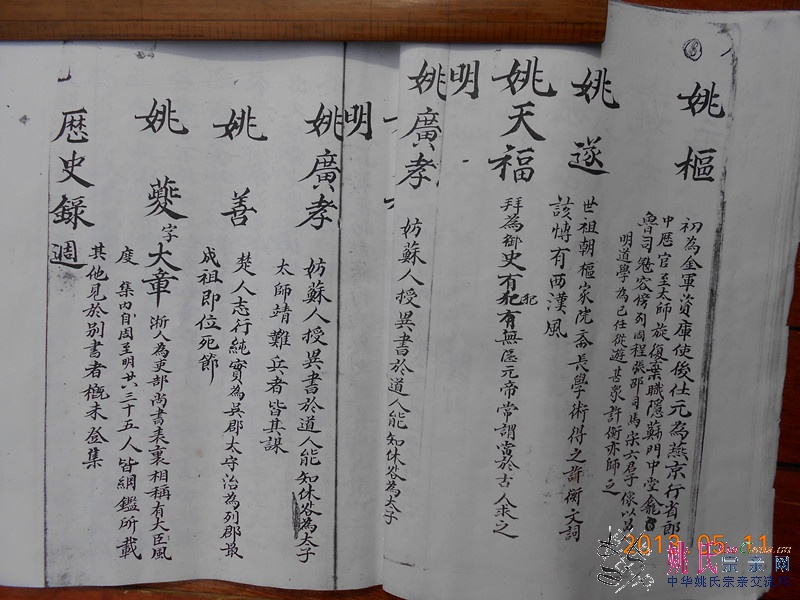 ⑧
姚樞
初為金軍資庫使後仕元為燕京行省郎
中歷官至太師旋復棄職隱蘇門中堂龕
魯司冠容傍列周程張邵司馬宋六君子像以
明道學為己任從遊甚衆許衡亦師之
姚遂
世祖朝樞家院斎長學術得之許衡文詞
該愽有西漢風
姚天福
拜為御史有犯有無隱元帝常謂當於古人求之
犯
明
姚廣孝
妨蘇人授異書於道人能知休咎為太子
明
姚廣孝
妨蘇人授異書於道人能知休咎為太子
太師靖難兵者皆其謀
姚善
楚人志行純實為吳郡太守治為列郡最
成祖即位死節
姚夔字大章
浙人為吏部尚書表裏相稱有大臣風
度 集內自周至明共三十五人皆網鑑所載
其他見於别書者概未登集
歷史錄週
2013.05.11
姚氏宗亲网
中华姚氏宗亲交流